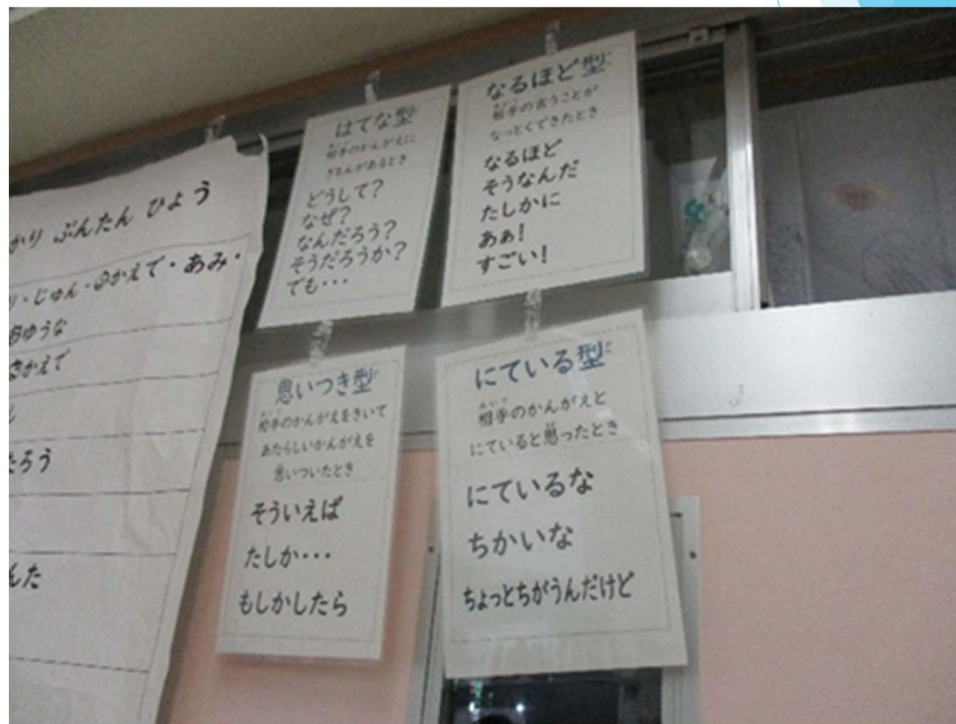 かり ぶんたん ひょう
り・じゅん・ゆかえで・あみ・
おゆうな
さかえで
し
たろう
んた
はてな型
相手のかんがえに
ぎもんがあるとき
どうして?
なぜ?
なんだろう?
そうだろうか?
でも・・・
なるほど型
相手の言うことが
なっとくできたとき
なるほど
そうなんだ
たしかに
あぁ!
すごい!
思いつき型
相手のかんがえをきいて
あたらしいかんがえを
思いついたとき
そういえば
たしか・・・
もしかしたら
にている型
相手のかんがえと
にていると思ったとき
にているな
ちかいな
ちょっとちがうんだけど